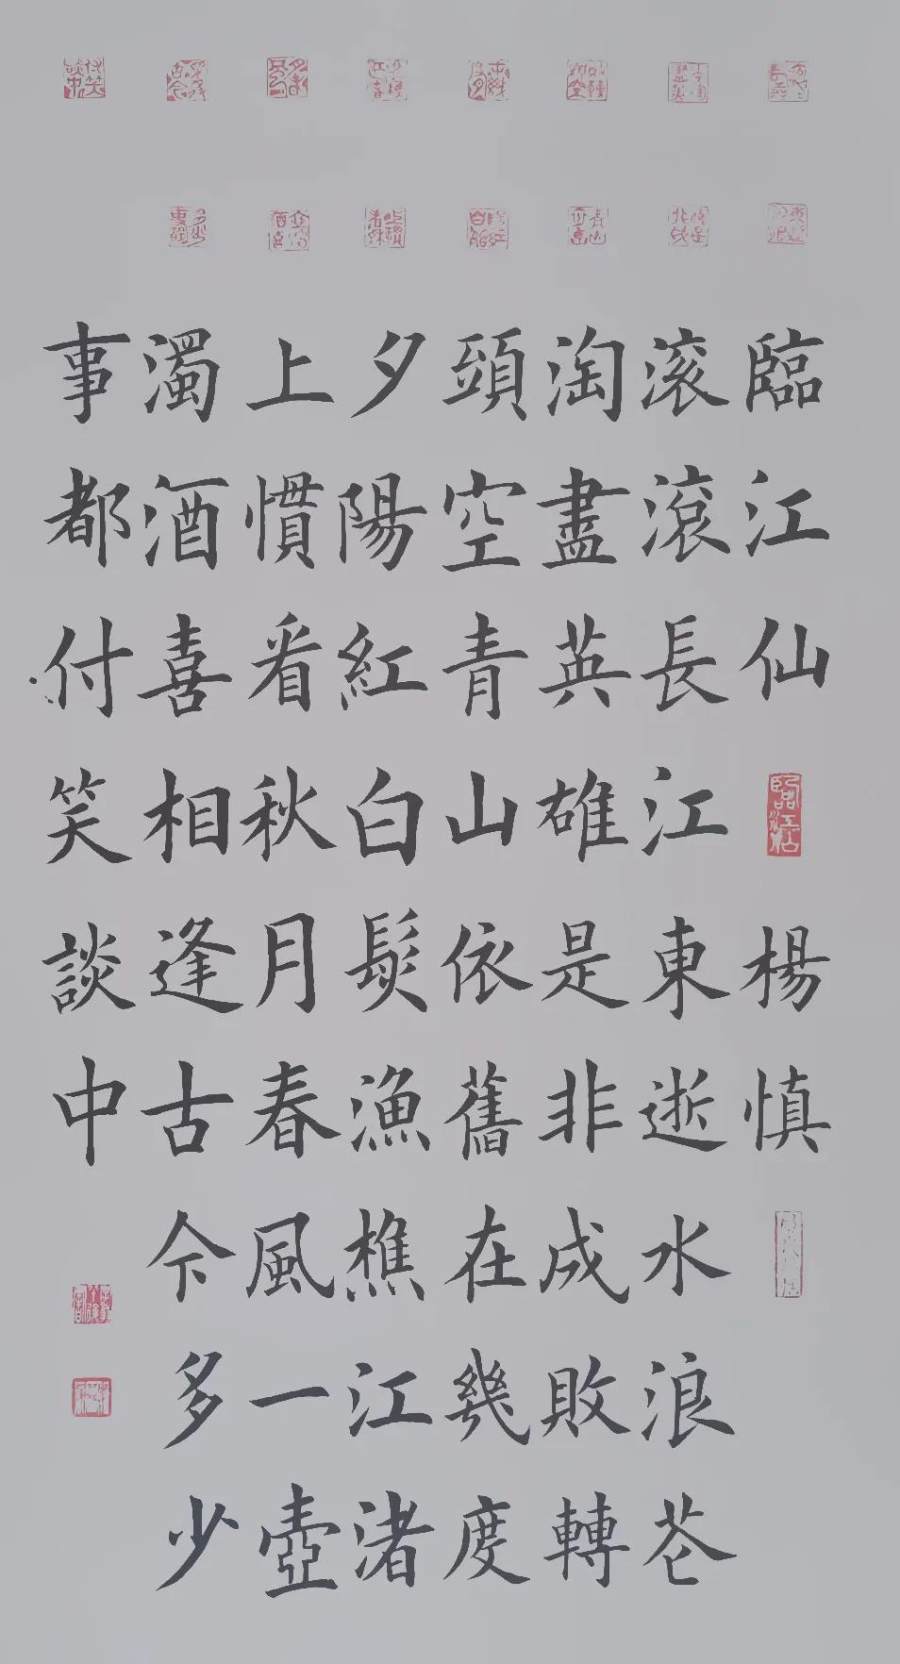 臨江仙 楊慎
滚滾長江東逝水浪花
淘盡英雄是非成敗轉
頭空青山依舊在幾度
夕陽紅白髮漁樵江渚
上慣看秋月春風一壺
濁酒喜相逢古今多少
事都付笑談中